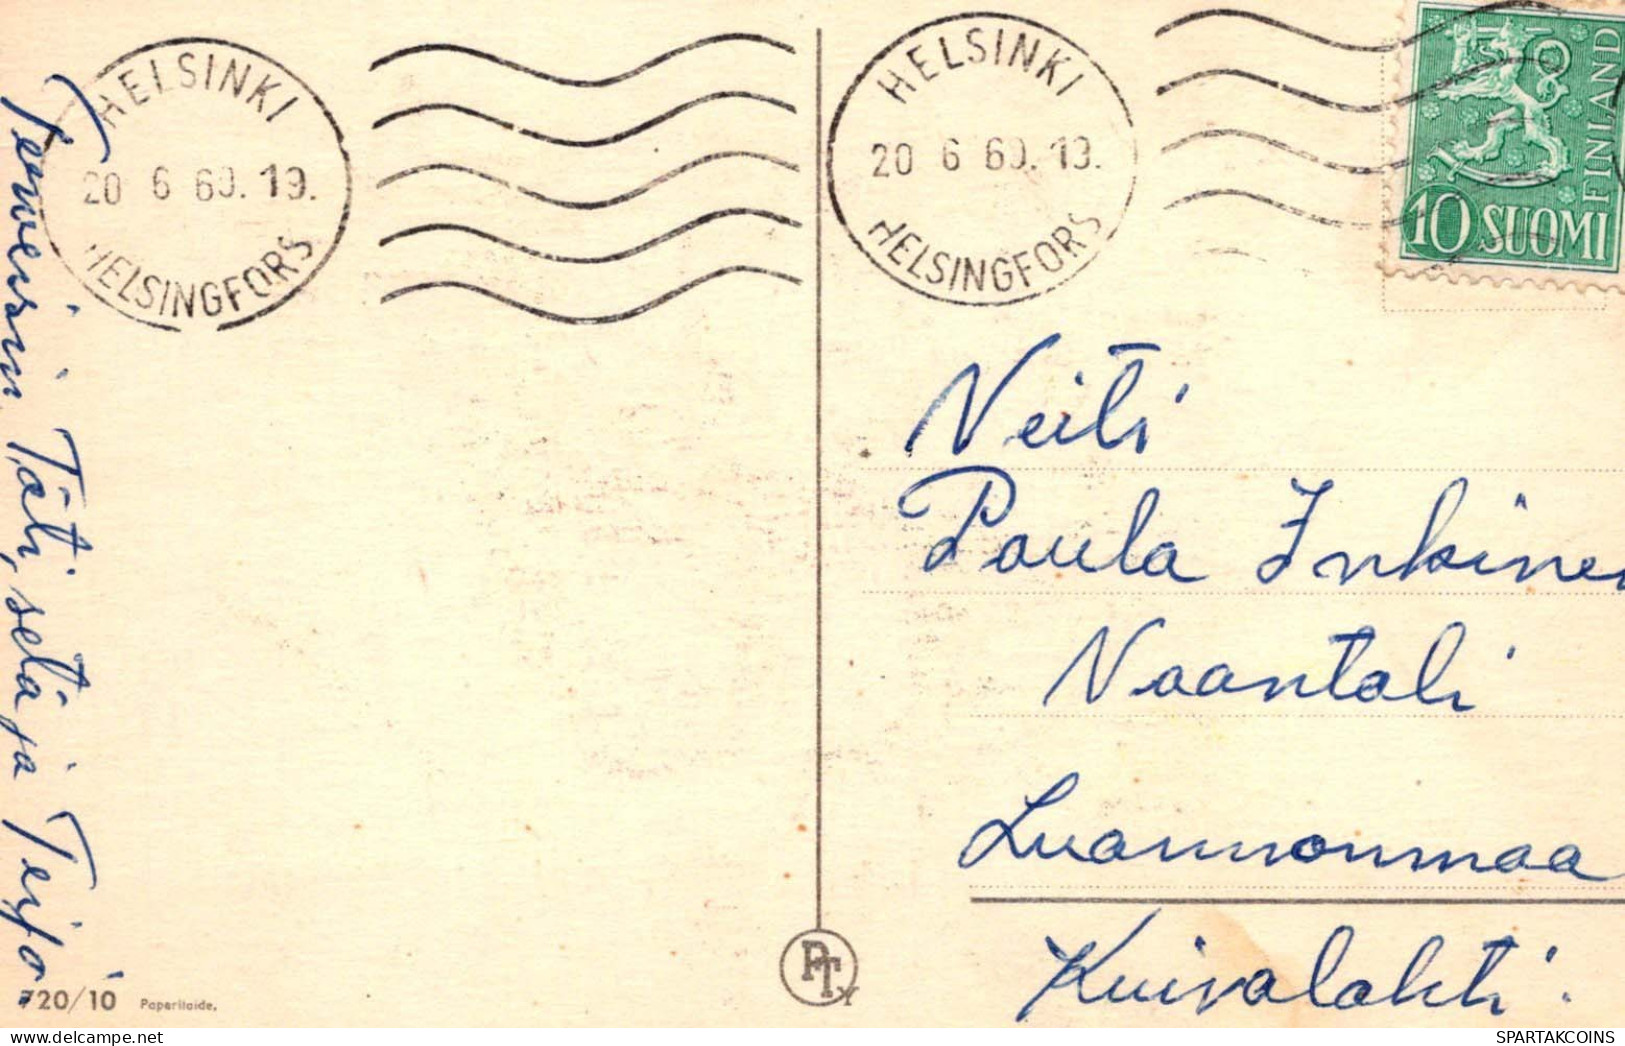 HELSINKI
20 6 60. 19.
HELSINGFORS
HELSINKI
20 6 60. 19.
HELSINGFORS
FINLAND
10 SUOMI
Terveisin Täti, setä ja Teijo
Neiti
Paula Inkinen
Naantali
Luonnonmaa
Kuivalahti.
PT
720/10 Paperitaide.
SPARTAKCOINS
www.delcampe.net